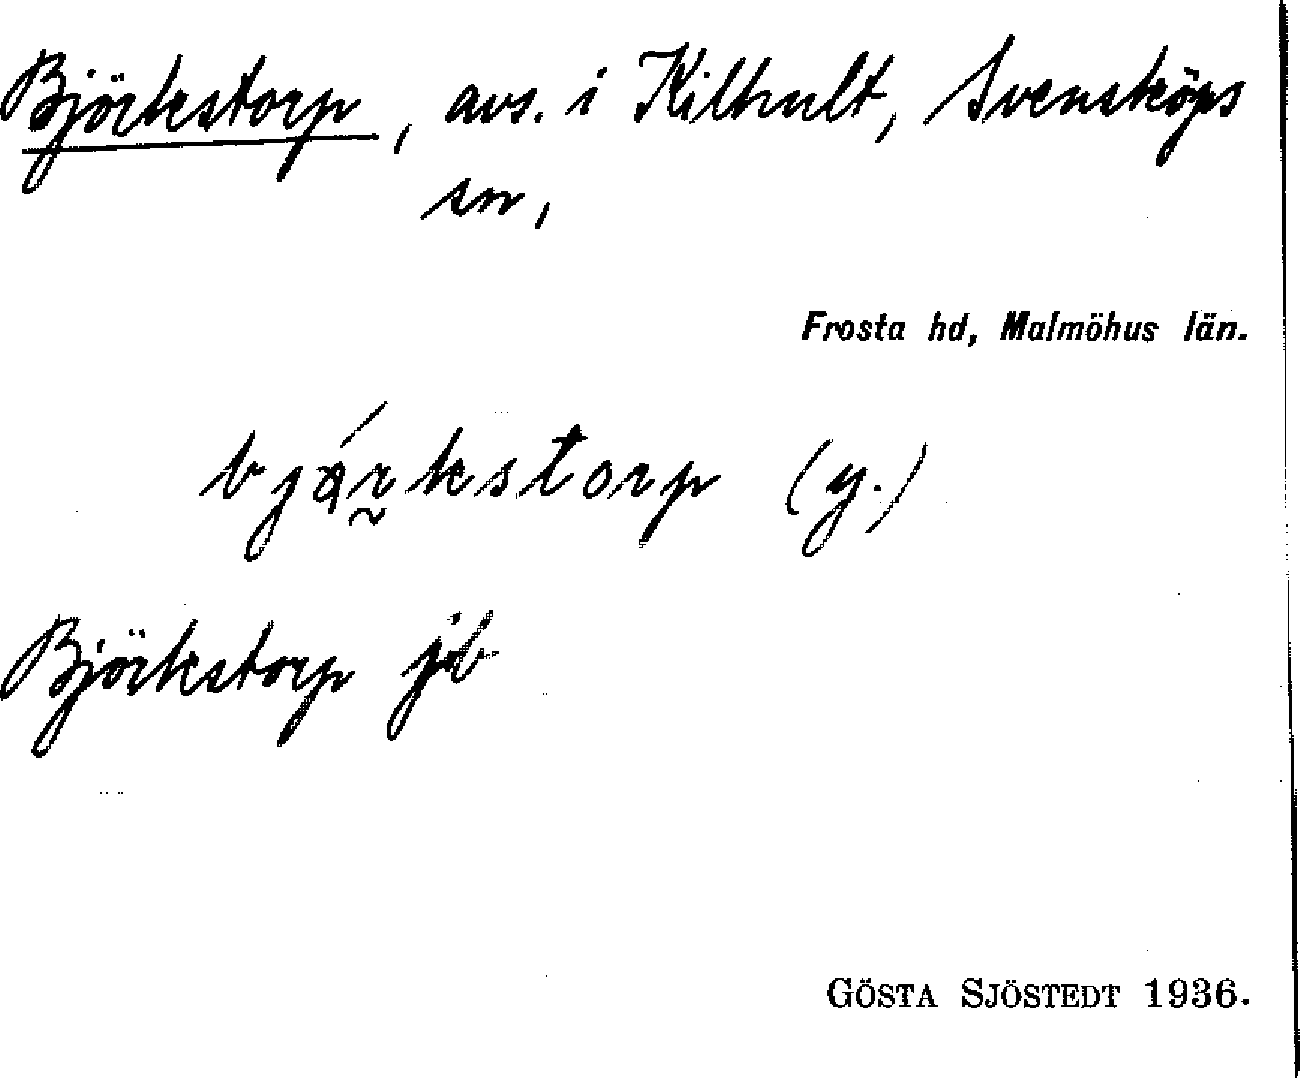 Björkstorp, avs. i Kilhult, Svensköps
sn,
Frosta hd, Malmöhus län.
bjá̊r̰kstorp (y.)
Björkstorp jb
GÖSTA SJÖSTEDT 1936.